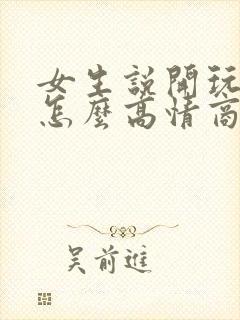 女生說開玩
怎麼高情商
吳前進